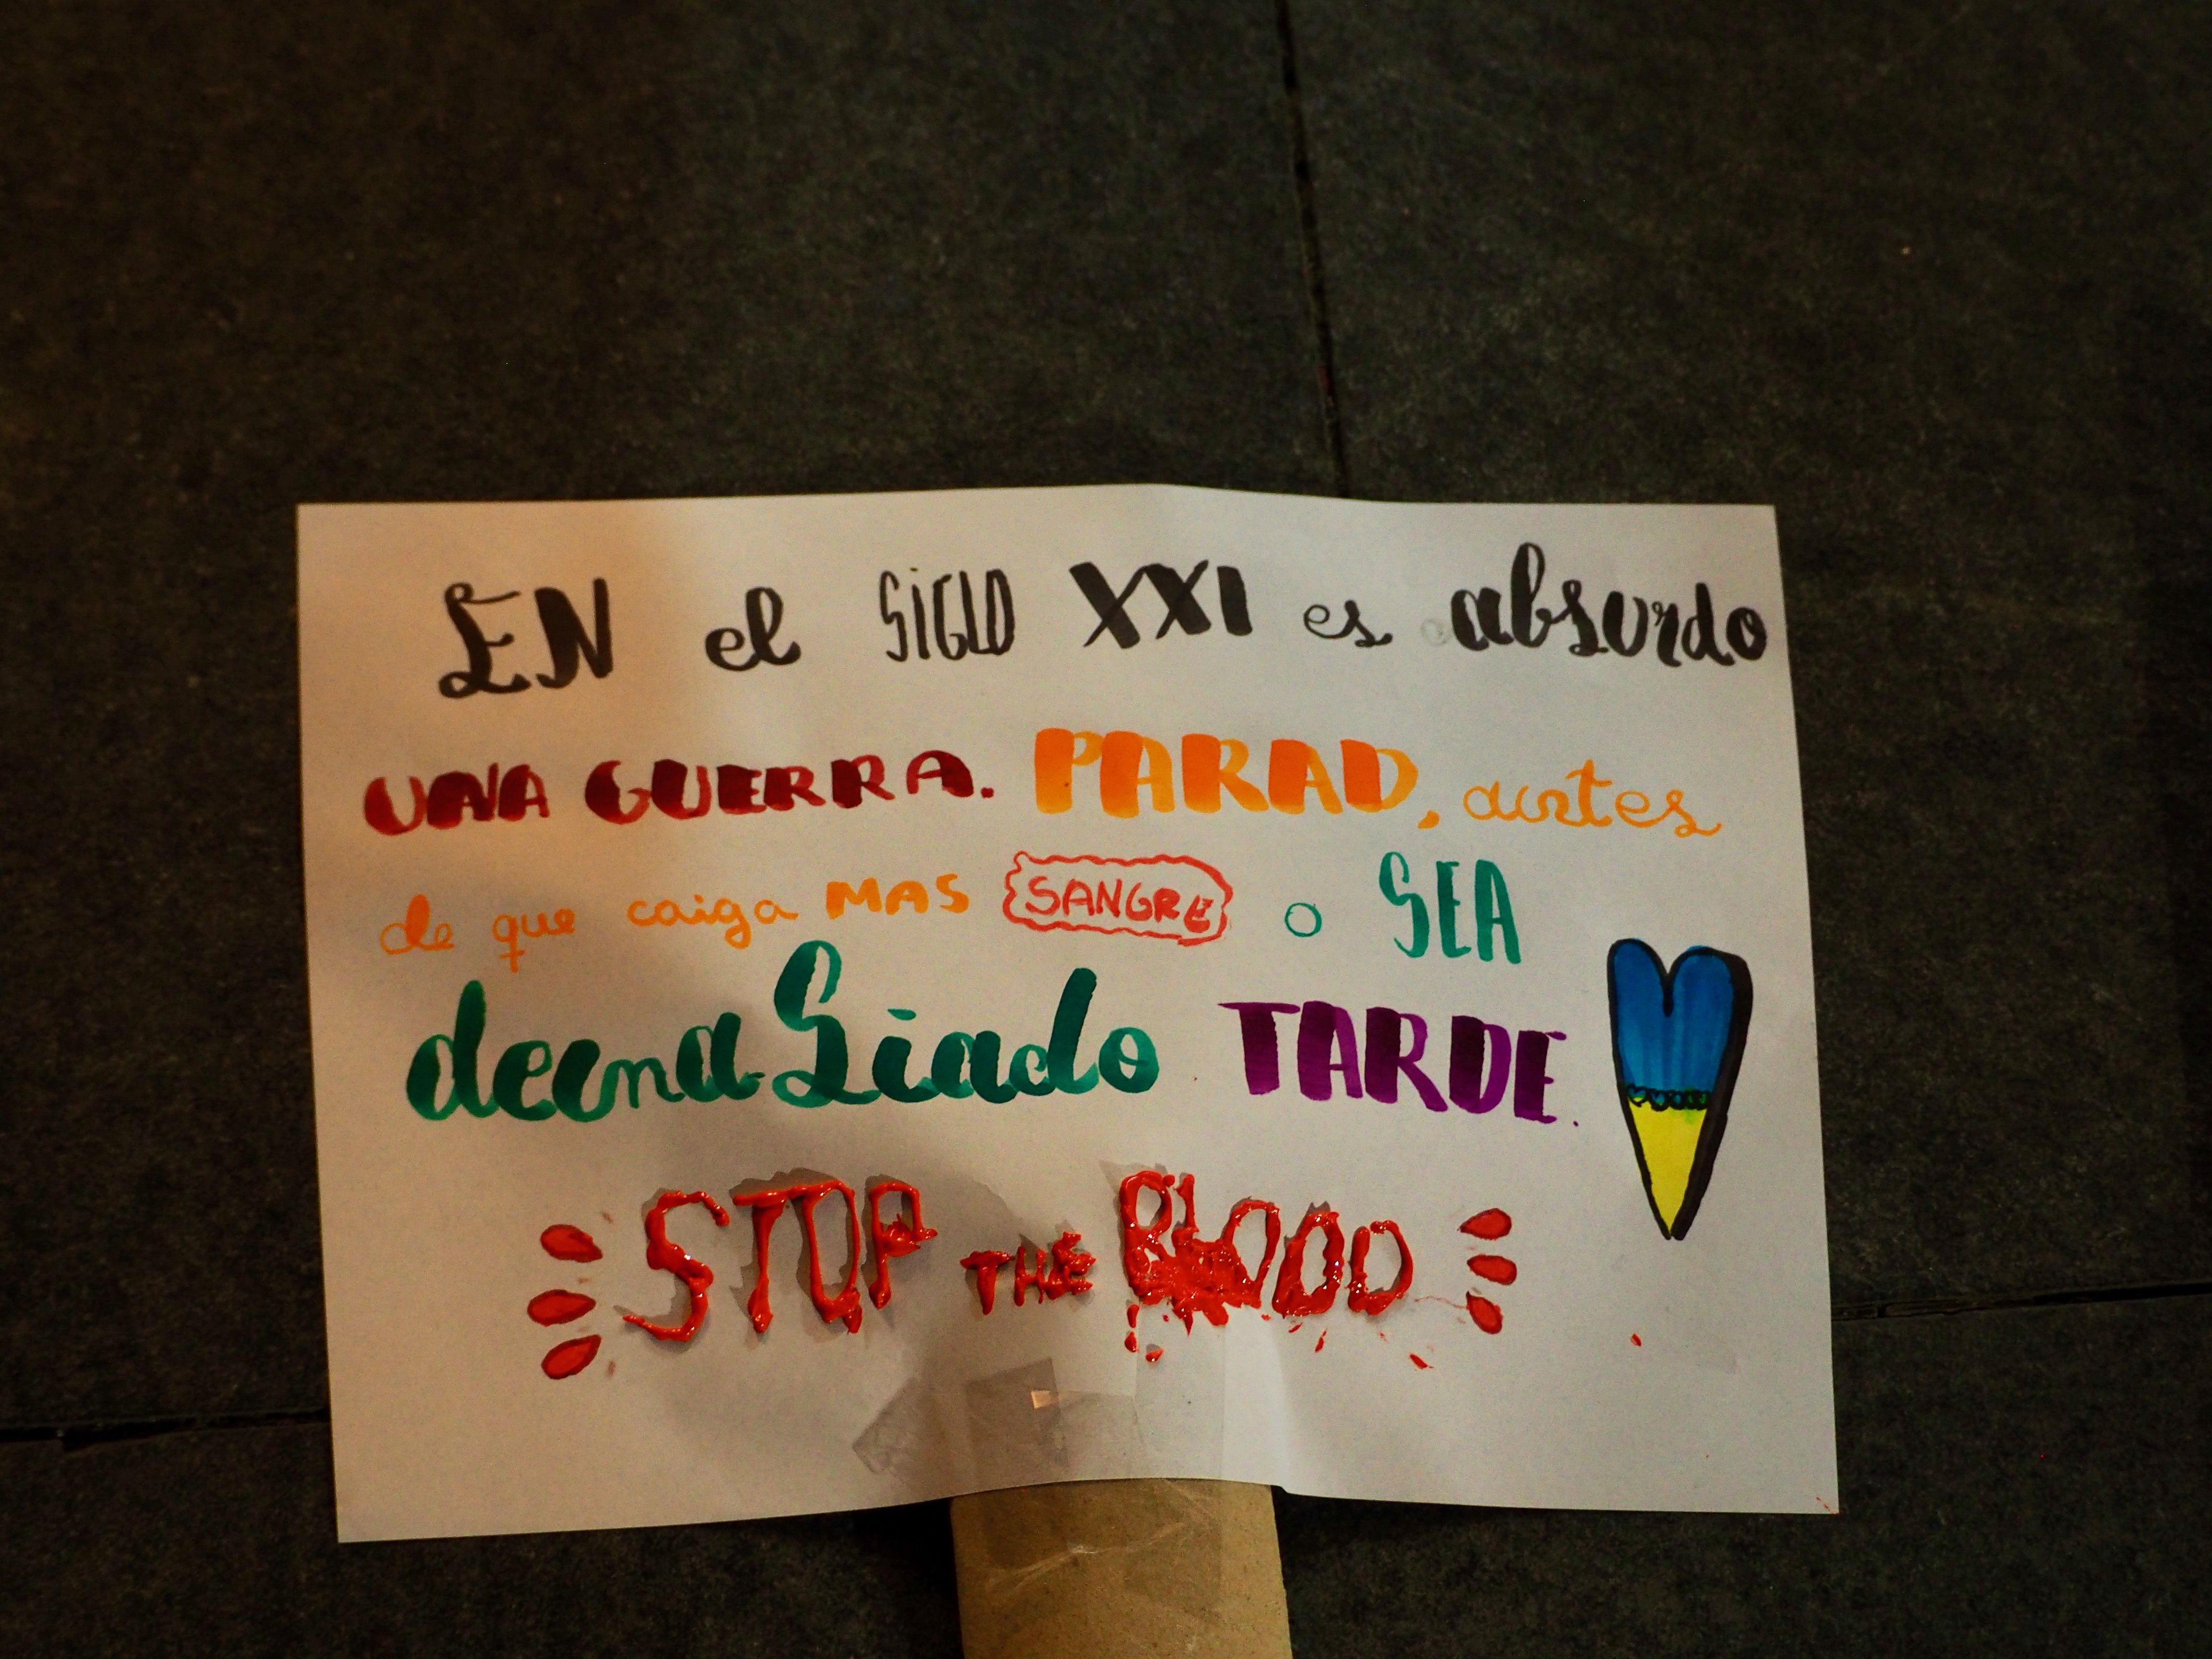 EN el SiGLO XXI es absurdo
UNA GUERRA. PARAD, antes
de que caiga MAS SANGRE o SEA
demaSiado TARDE.
STOP THE BLOOD